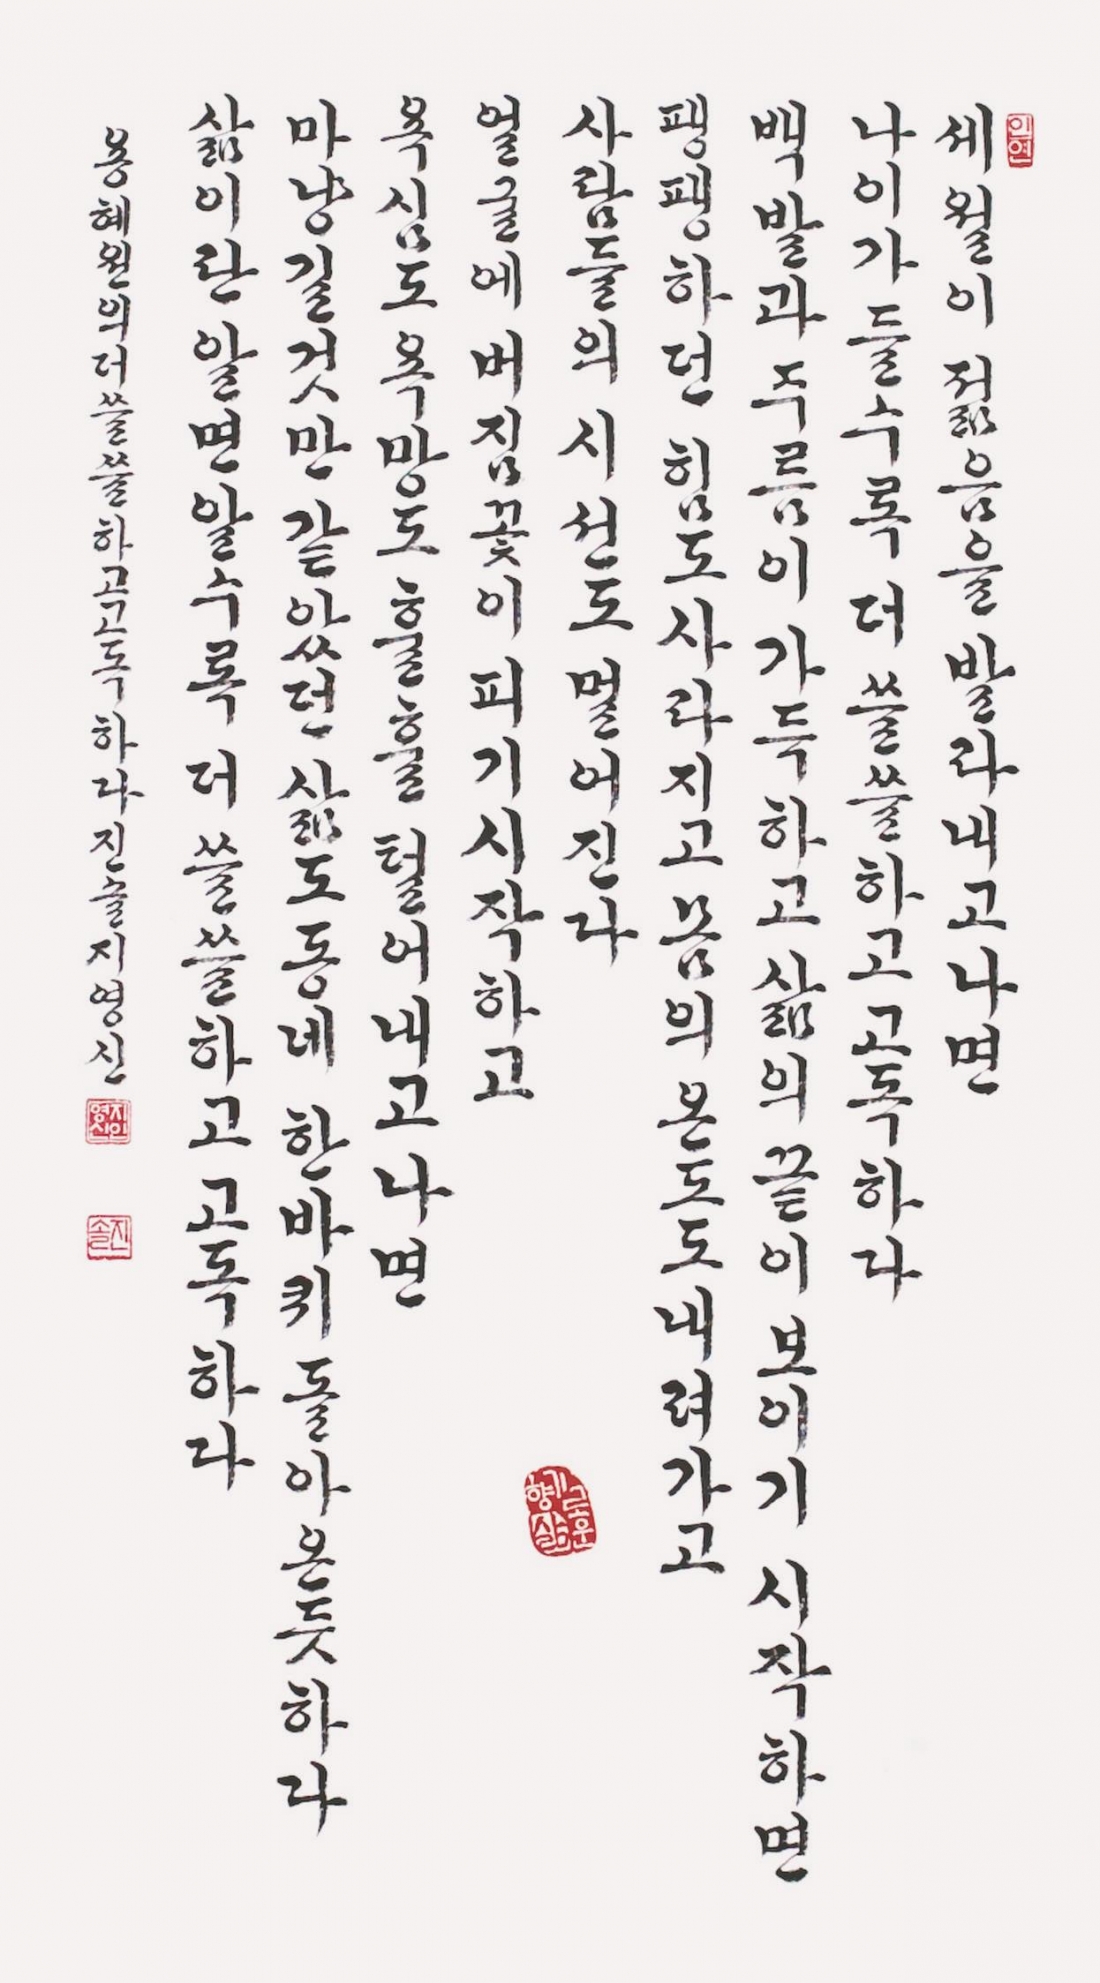 인연
세월이 젊음을 발라내고 나면
나이가 들수록 더 쓸쓸하고 고독하다
백발과 주름이 가득하고 삶의 끝이 보이기 시작하면
팽팽하던 힘도 사라지고 몸의 온도도 내려가고
사람들의 시선도 멀어진다
얼굴에 버짐꽃이 피기 시작하고
욕심도 욕망도 훌훌 털어내고 나면
마냥 길것만 같았던 삶도 동네 한바퀴 돌아온듯하다
삶이란 알면 알수록 더 쓸쓸하고 고독하다
용혜원의 더 쓸쓸하고 고독하다 진솔 지영신
진솔